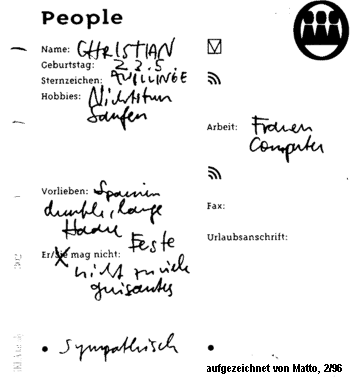 People
Name: CHRISTIAN
Geburtstag: 22.5
Sternzeichen: ZWILLINGE
Hobbies: Nichtstun
Saufen
Arbeit: Frauen
Computer
Vorlieben: Spanien
dunkle, lange
Haare
Fax:
Urlaubsanschrift:
Er/Sie mag nicht: Feste
nicht zu viele
guisantes
Sympathisch
aufgezeichnet von Matto, 2/96